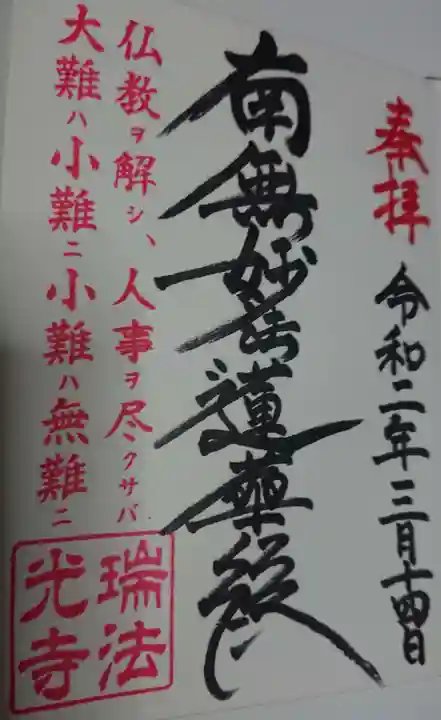 奉拝
令和二年三月十四日
南無妙法蓮華経
仏教ヲ解シ、人事ヲ尽クサバ
大難ハ小難ニ小難ハ無難ニ
瑞法
光寺